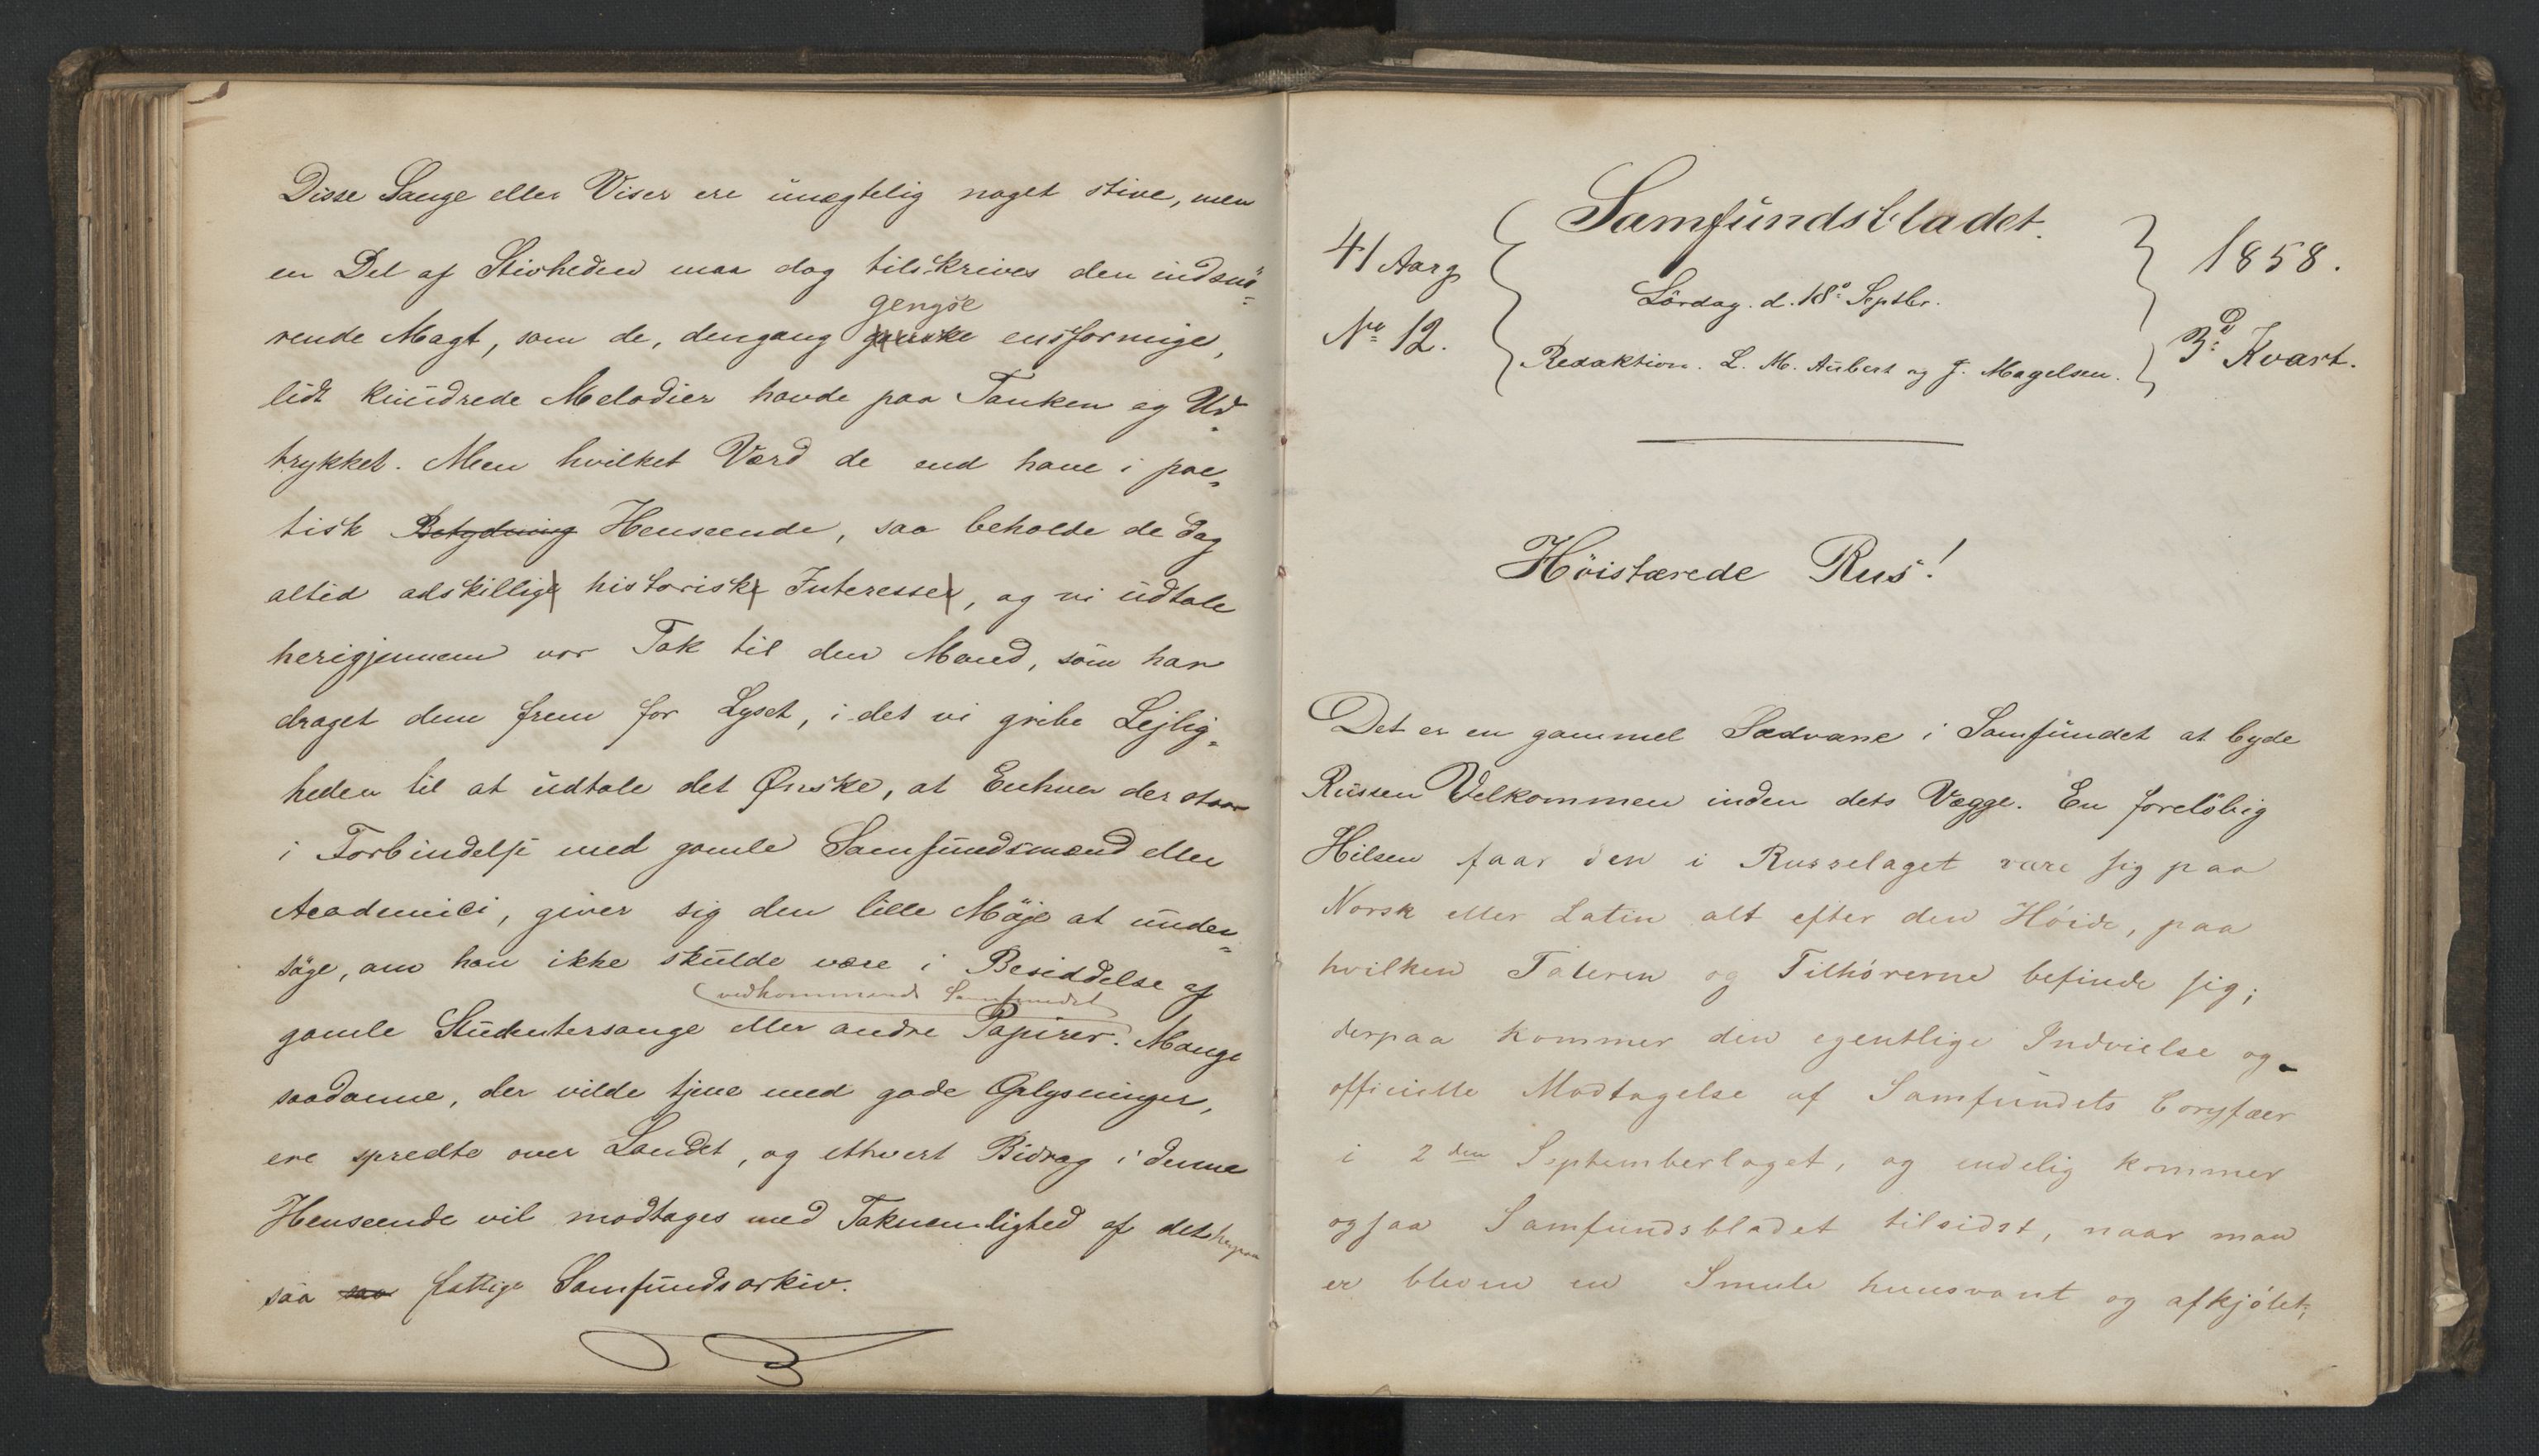 Disse Sange eller Viser ere unægtelig noget stive, men
en Del af Stivheden maa dog tilskrives den indsnö=
gengse
rende Magt, som de, dengang ganske ensformige,
lidt kundrede Melodier havde paa Tanken og Ud=
trykket. Men hvilket Værd de end have i poe=
tisk Betydning Henseende, saa beholde de dog
altid adskillige historiske Interesser, og vi udtale
herigjennem vor Tak til den Mand, som har
draget dem frem for Lyset, i det vi gribe Lejlig=
heden til at udtale det Ønske, at Enhver der staar
i Forbindelse med gamle Samfundsmænd eller
Academici, giver sig den lille Möje at under=
söge, om han ikke skulde være i Besiddelse af
vedkommende Samfundet
gamle Studentersange eller andre Papirer. Mange
saadanne, der vilde tjene med gode Oplysninger,
ere spredte over Landet, og ethvert Bidrag i denne
Henseende vil modtages med Taknemlighed af det
saa saa fattige Samfundsarkiv.
Samfundsbladet.
41 Aarg
1858.
Lördag. d. 18de Septbr.
No 12.
3d Kvart.
Redaktion. L. M. Aubert og J. Magelsen.
Höistærede Rus!
Det er en gammel Sædvane i Samfundet at byde
Russen Velkommen inden dets Vægge. En forelöbig
Hilsen faar den i Russelaget være sig paa
Norsk eller Latin alt efter den Höide, paa
hvilken Taleren og Tilhörerne befinde sig;
derpaa kommer den egentlige Indvielse og
officielle Modtagelse af Samfundets Coryfæer
i 2den Septemberlaget, og endelig kommer
ogsaa Samfundsbladet tilsidst, naar man
er bleven en Smule huusvant og afkjölet;